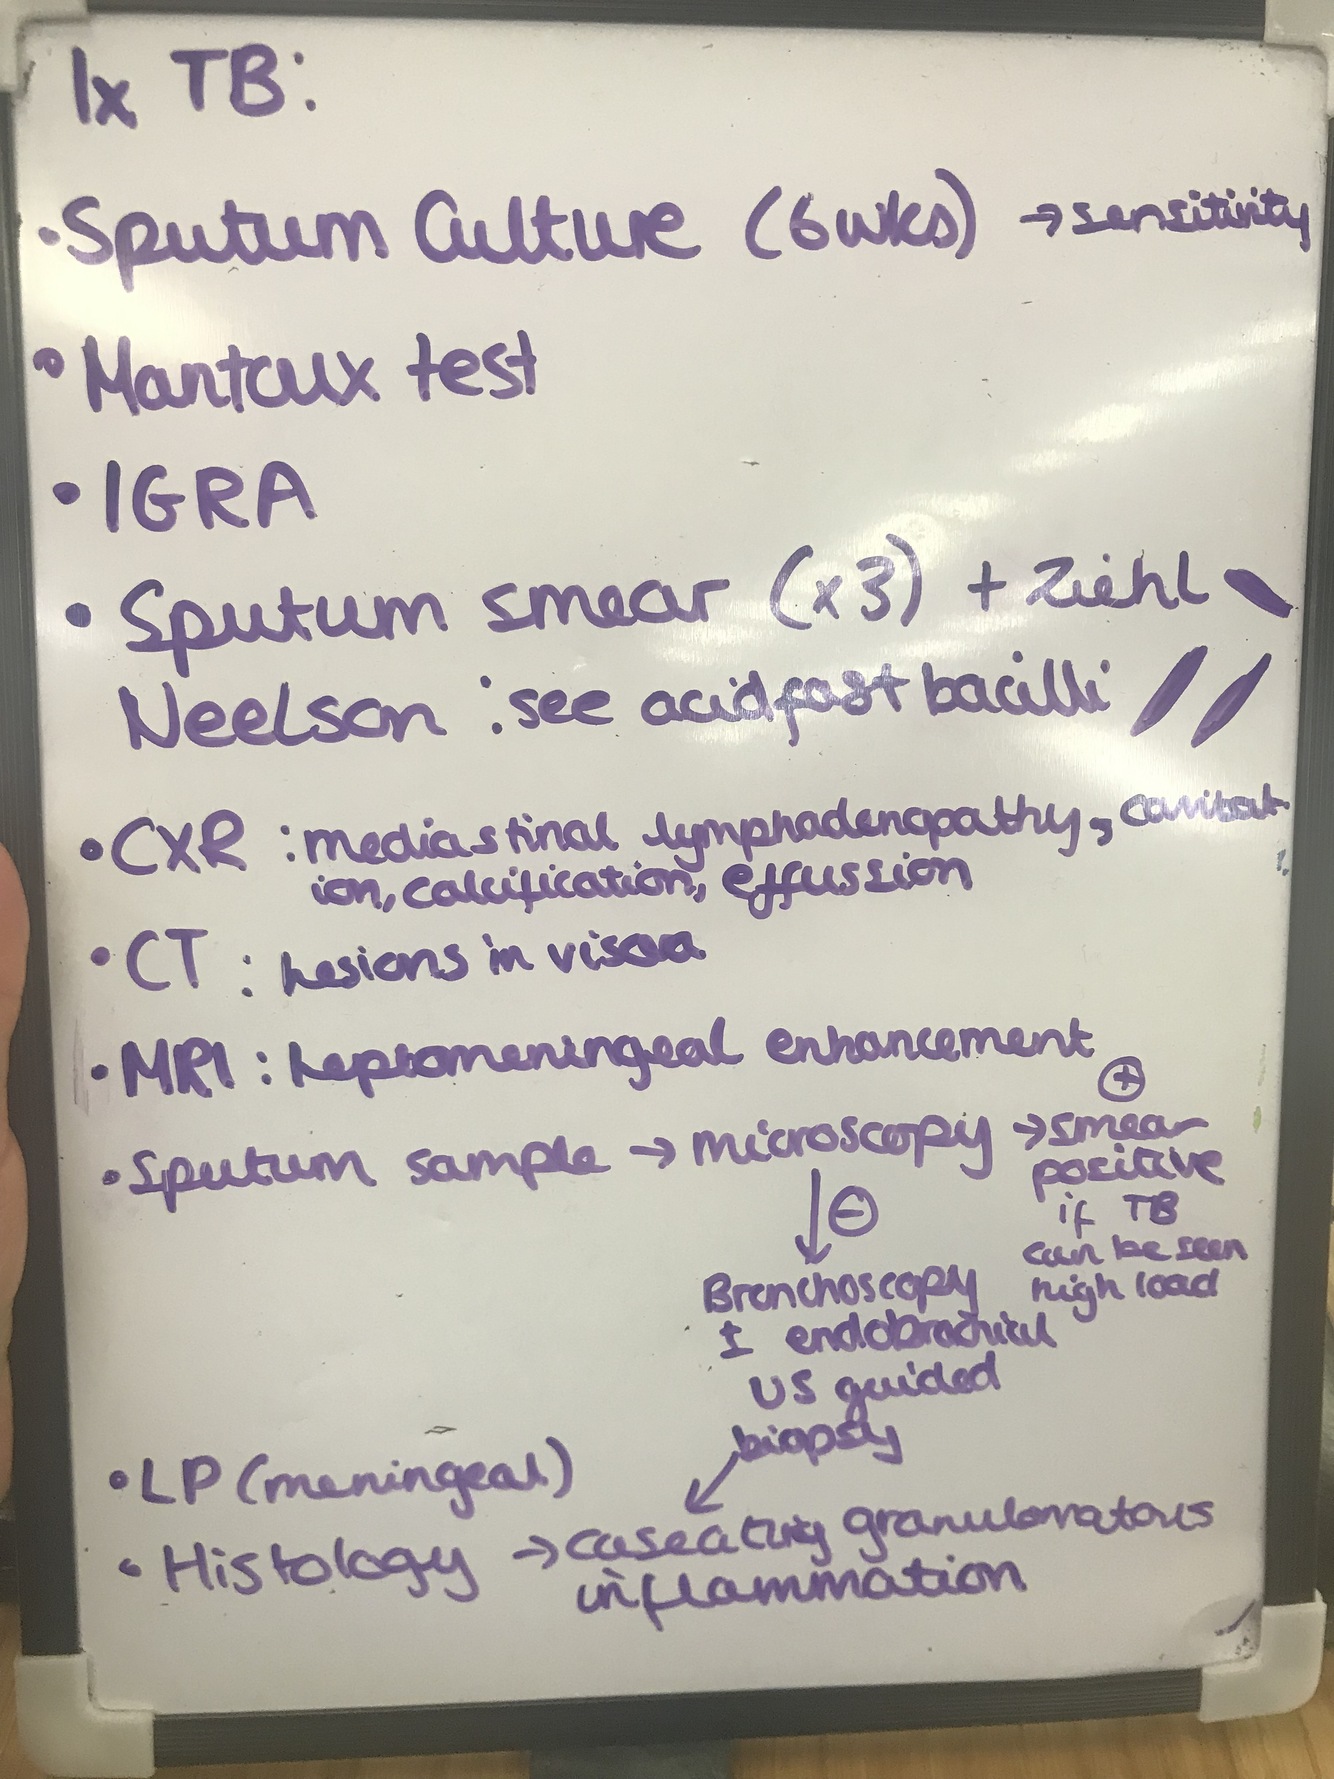 Ix TB:
• Sputum Culture (6wks) → sensitivity
• Mantoux test
• IGRA
• Sputum smear (x3) + Ziehl
Neelson : see acid fast bacilli
• CXR : mediastinal lymphadenopathy, cavitat-
ion, calcification, effussion
• CT : Lesions in viscera
• MRI : Leptomeningeal enhancement
• Sputum sample → microscopy → smear
⊕
positive
if TB
can be seen
high load
↓ ⊖
Bronchoscopy
± endobrachial
US guided
biopsy
• LP (meningeal)
• Histology → caseating granulomatous
inflammation